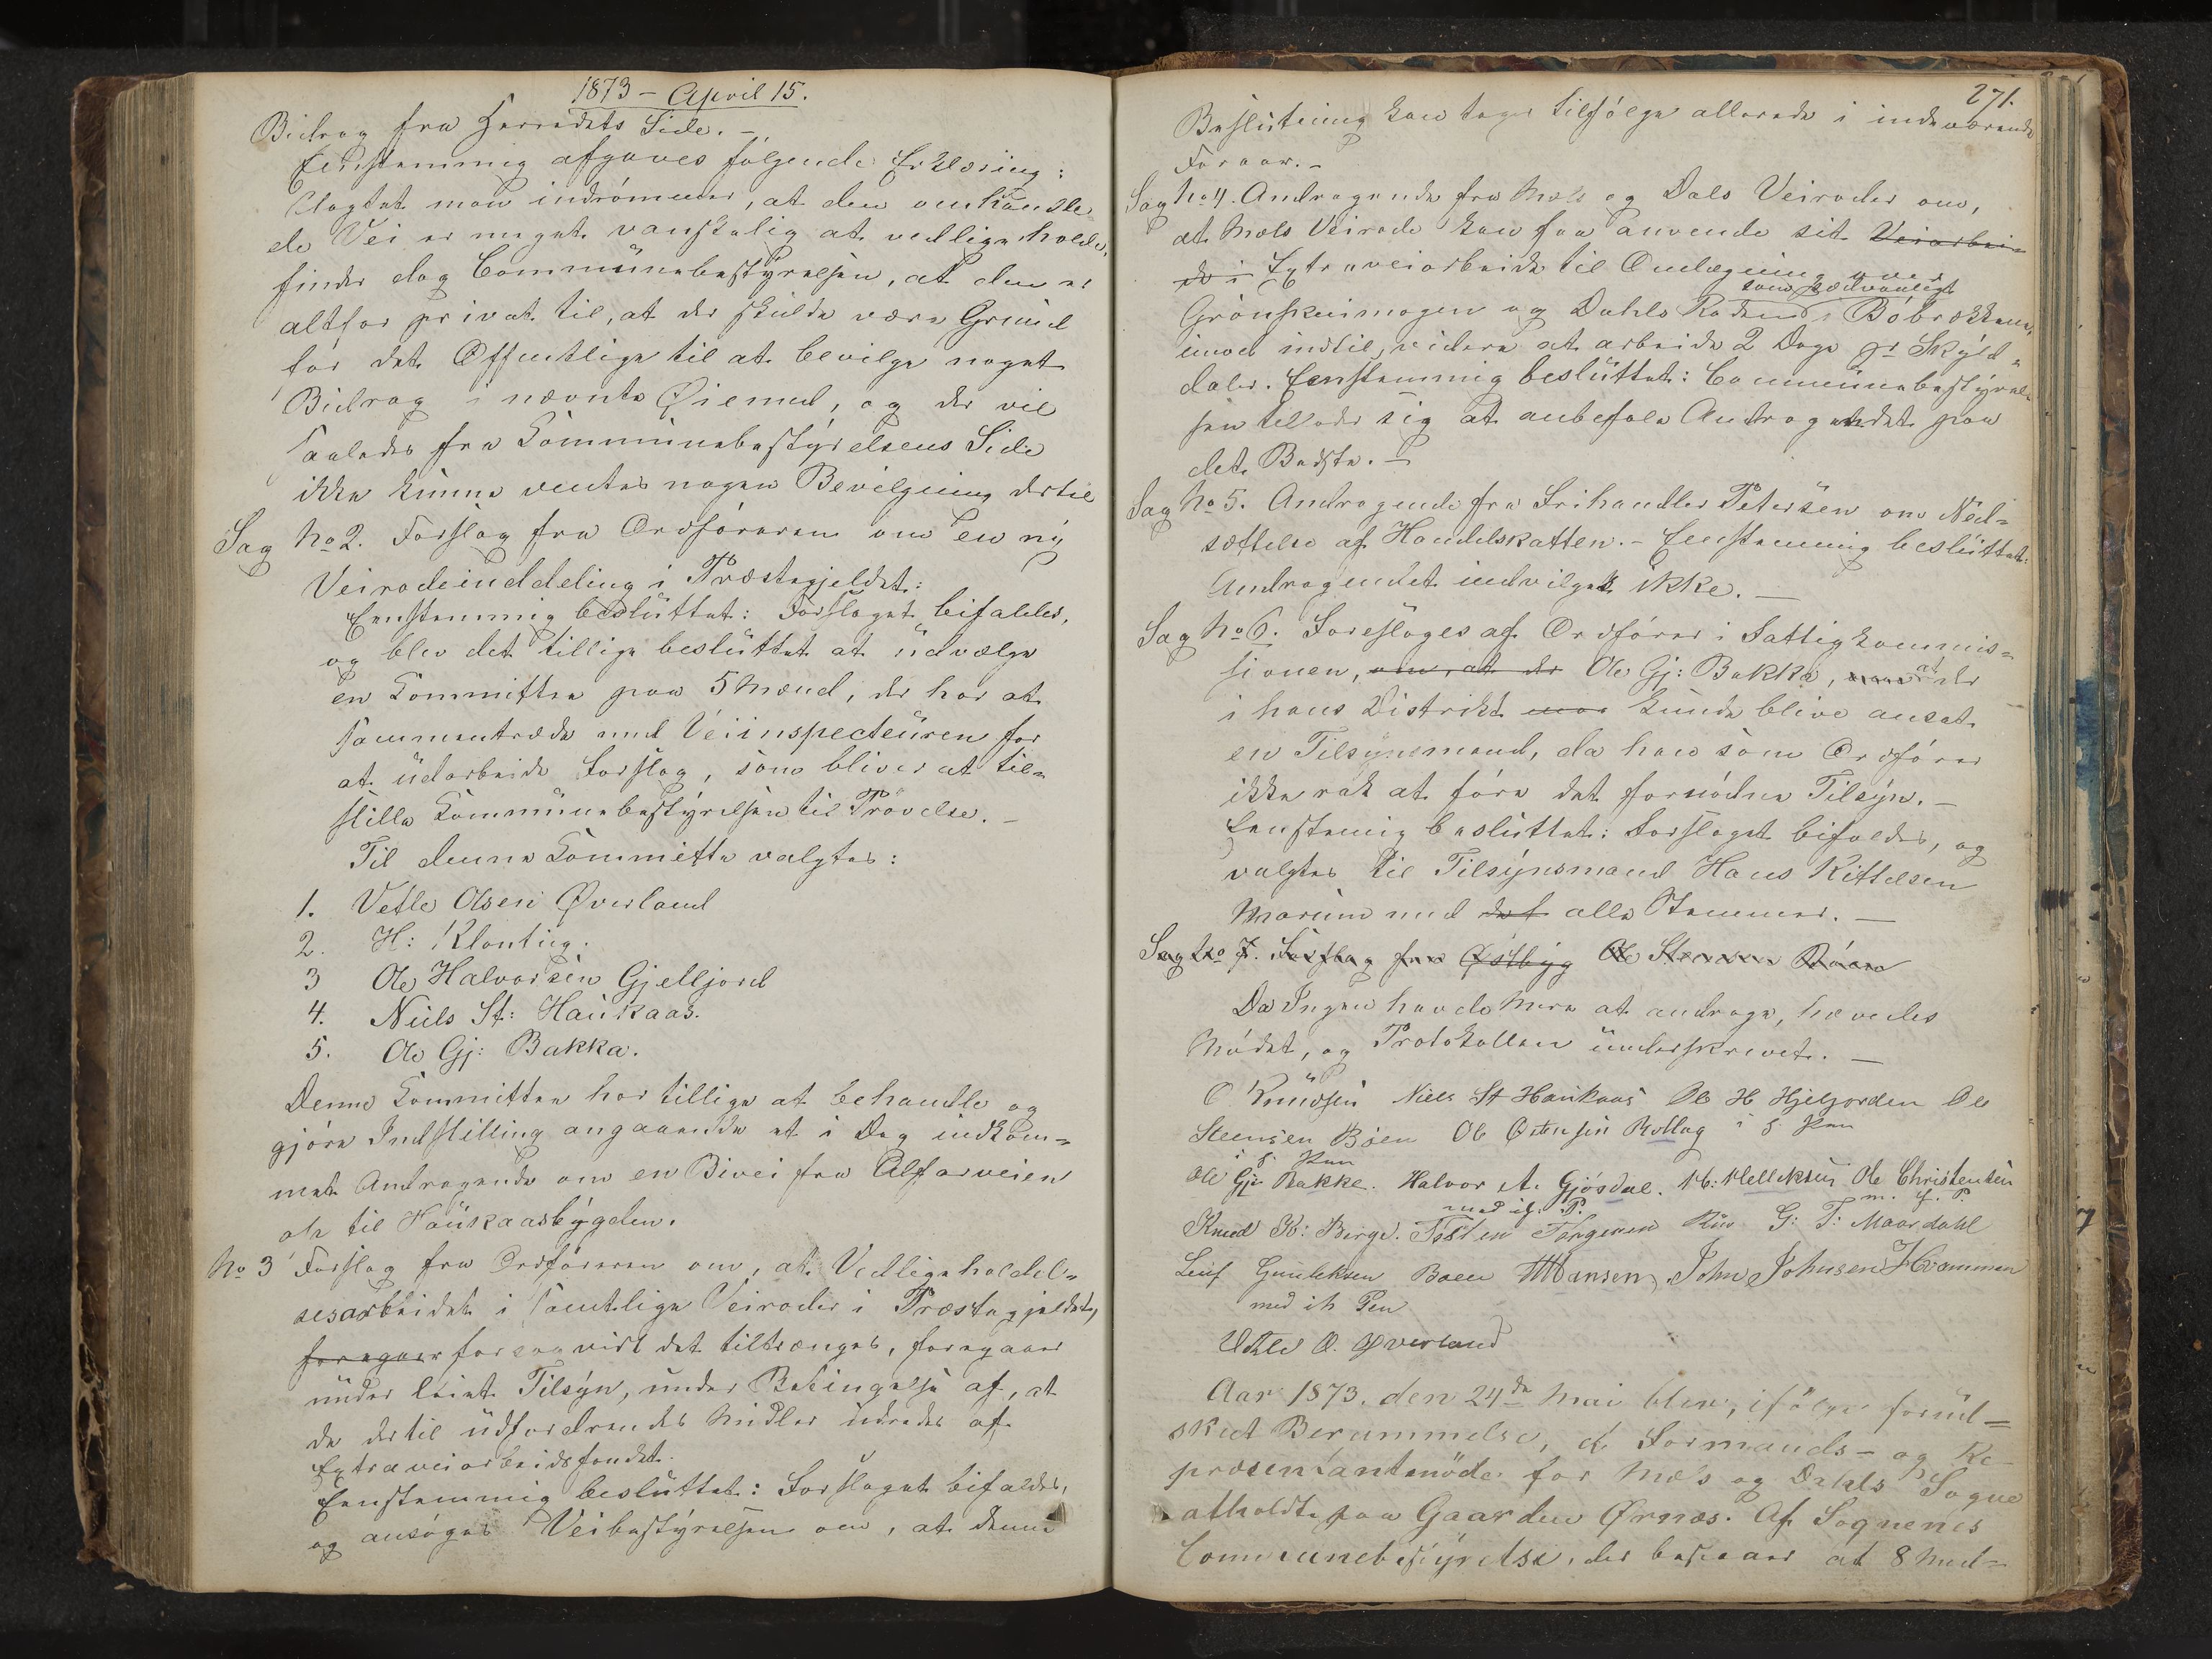 1873 – April 15.
Bidrag fra Herredets Side. –
Eenstemmig afgaves følgende Erklæring:
Uagtet man indrømmer, at den omhandle
de Vei er meget vanskelig at vedligeholde,
finder dog Communebestyrelsen, at den er
altfor privat til, at der skulde være Grund
for det Offentlige til at bevilge noget
Bidrag i nævnte Øiemed, og der vil
saaledes fra Kommunebestyrelsens Side
ikke kunne ventes nogen Bevilgning dertil
Sag No 2. Forslag fra Ordføreren om en ny
Veirodeinddeling i Præstegjeldet:
Eenstemmig besluttet: Forslaget bifaldes,
og blev det tillige besluttet at udvælge
en Committee paa 5 Mænd, der har at
sammentræde med Veiinspecteuren for
at udarbeide Forslag, som bliver at til=
stille Kommunebestyrelsen til Prøvelse. –
Til denne Committee valgtes:
1. Vetle Olsen Øverland
2. H: Klonting.
3 Ole Halvorsen Gjelljord
4. Niels St: Haukaas.
5. Ole Gj: Bakka.
Denne Committee har tillige at behandle og
gjøre Indstilling angaaende et i Dag indkom=
met Andragende om en Bivei fra Alfarveien
op til Haukaasbygden.
No 3 Forslag fra Ordføreren om, at Vedligeholdel=
sesarbeidet i samtlige Veiroder i Præstegjeldet,
foregaar forsaavidt det tiltrænges, foregaar
under leiet Tilsyn, under Betingelse af, at
de dertil udfordrendes Midler udredes af
Extraveiarbeidsfondet.
Eenstemmig besluttet: Forslaget bifaldes,
og ansøges Veibestyrelsen om, at denne
271.
Beslutning kan tages tilfølge allerede i indeværende
Foraar. –
Sag No 4. Andragende fra Mæls og Dals Veiroder om,
at Mæls Veirode kan faa anvende sit Veiarbei=
de i Extraveiarbeide til Omlægning over
som sædvanligt
Grønskeimogen og Dahls Roden i Bøbrækkene,
imod indtil videre at arbeide 2 Dage pr Skyld=
daler. Eenstemmig besluttet: Communebestyrel=
sen tillader sig at anbefale Andragendet paa
det Bedste. –
Sag No 5. Andragende fra Frihandler Petersen om Ned=
sættelse af Handelskatten. – Eenstemmig besluttet:
Andragendet indvilges ikke. –
Sag No 6. Foresloges af Ordfører i Fattigkommis=
sionen, om, at der Ole Gj: Bakka, at der
i hans Distrikt kunde blive ansat
en Tilsynsmand, da han som Ordfører
ikke rak at føre det fornødne Tilsyn. –
Eenstemig besluttet: Forslaget bifaldes, og
valgtes til Tilsynsmand Hans Kittelsen
Marum med alle Stemmer. –
Sag No 7. Forslag fra Østbyg Ole Stensen Bøen
Da Ingen havde mere at andrage, hævedes
Mødet, og Protokollen underskrevet. –
O Knudsen Niels St Haukaas Ole H Hjeljorden Ole
Steensen Bøen Ole Østensen Rollag i h. Pen
i h. Pen
Ole Gj: Bakke. Halvor A. Gjøsdal. H: Kittelsen Ole Christensen
med ih. P. m. h. P.
Knud K: Berge. Tosten Torgersen Rue G: T: Maardahl
Leif Gunleksen Boen Hansen, John Johnsen Hvammen
med ih Pen
Vetle O. Øverland
Aar 1873. den 24de Mai blev, ifølge forud=
skeet Berammelse, et Formands- og Re-
præsentantmøde for Mæls og Dahls Sogne
afholdt paa Gaarden Ørnæs. Af Sognenes
Communebestyrelse, der bestaar af 8 Med=